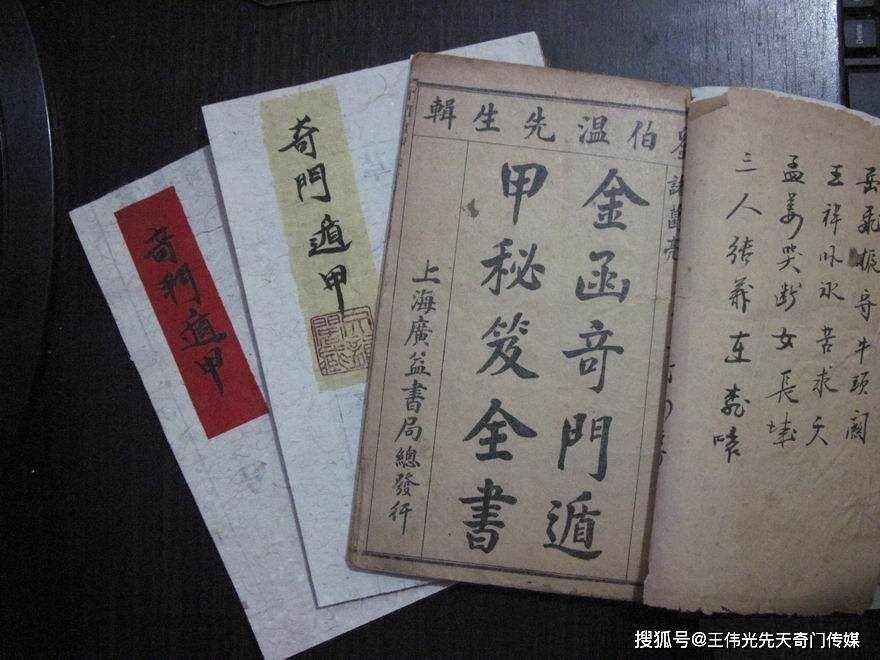 奇門遁甲
奇門遁甲
劉伯溫先生輯
諸葛亮
金函奇門遁
甲秘笈全書
上海廣益書局總發行
岳飛振守牛頭
王祥卧冰苦求天
孟姜哭断女長城
三人結義在桃
Delete
搜狐号@王伟光先天奇门传媒